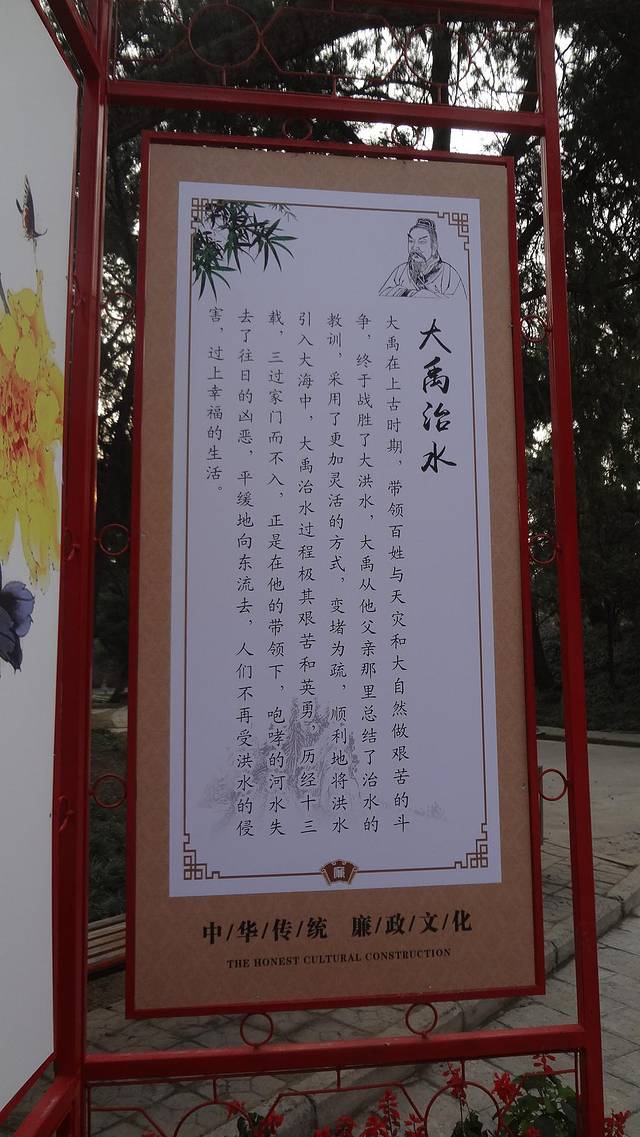 大禹治水
大禹在上古时期，带领百姓与天灾和大自然做艰苦的斗
争，终于战胜了大洪水，大禹从他父亲那里总结了治水的
教训，采用了更加灵活的方式，变堵为疏，顺利地将洪水
引入大海中，大禹治水过程极其艰苦和英勇，历经十三
载，三过家门而不入，正是在他的带领下，咆哮的河水失
去了往日的凶恶，平缓地向东流去，人们不再受洪水的侵
害，过上幸福的生活。
廉
中/华/传/统 廉/政/文/化
THE HONEST CULTURAL CONSTRUCTION